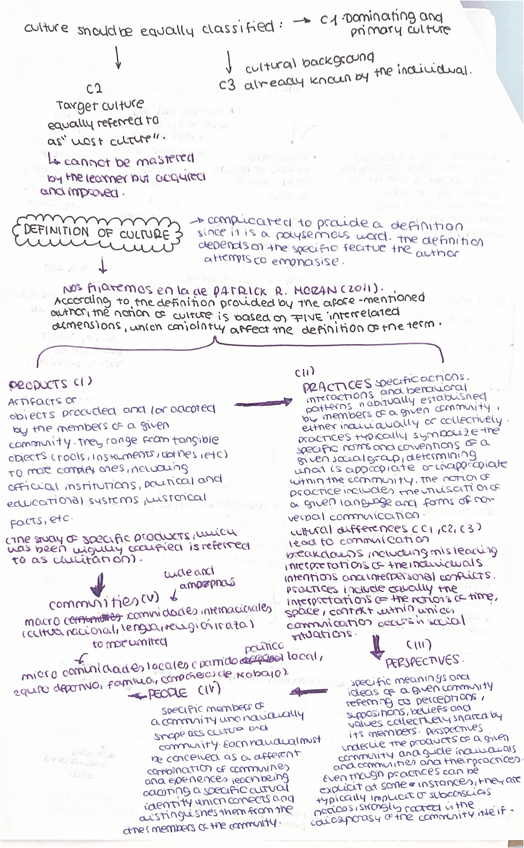 culture should be equally classified: → C1. Dominating and
primary culture
C3 cultural background
already known by the individual.
C2
Target culture
equally referred to
as "host culture".
↳ cannot be mastered
by the learner but acquired
and improved.
DEFINITION OF CULTURE
→ complicated to provide a definition
since it is a polysemous word. the definition
depends on the specific feature the author
attempts to emphasise.
Nos fijaremos en la de PATRICK R. MORAN (2011).
According to the definition provided by the afore-mentioned
author, the notion of culture is based on FIVE interrelated
dimensions, which conjointly affect the definition of the term.
PRODUCTS (I)
Artifacts or
objects produced and/or adopted
by the members of a given
community. They range from tangible
objects (tools, instruments, clothes, etc)
to more complex ones, including
official institutions, political and
educational systems, historical
facts, etc.
(the study of specific products, which
was been highly
to as
(II)
PRACTICES specific actions.
interactions and behavioral
patterns habitually established
by members of a given community,
either individually or collectively.
practices typically symbolize the
specific norms and conventions of a
given social group, determining
what is appropiate or inappropiate
within the community, the notion of
practice includes the utilisation of
a given language and forms of non-
verbal communication.
cultural differences (C1, C2, C3)
lead to communication
breakdowns, including misleading
interpretations of the individuals
intentions and interpersonal conflicts.
Practices include equally the
interpretations of the notions of time,
space, context within which
communication occurs in social
situations.
(III)
PERSPECTIVES.
specific meanings and
ideas of a given community
referring as perceptions,
suppositions, beliefs and
values collectively shared by
its members. Perspectives
underlie the products of a given
community and guide individuals
and communities and their practices.
Even though practices can be
explicit at some instances, they are
typically implicit or subconscious
notions, strongly rooted in the
idiosyncrasy of the community itself.
PEOPLE (IV)
specific members of
a community who individually
shape its culture and
community. Each individual must
be conceived as a different
combination of communities
and experiences, each being
adopting a specific cultural
identity which connects and
distinguishes them from the
other members of the community.
communities (V)
wide and
amorphous
macro comunidades internacionales
(cultura nacional, lengua, religión, raza)
to more limited
micro comunidades locales (partido político local,
equipo deportivo, familia, compañeros de trabajo).